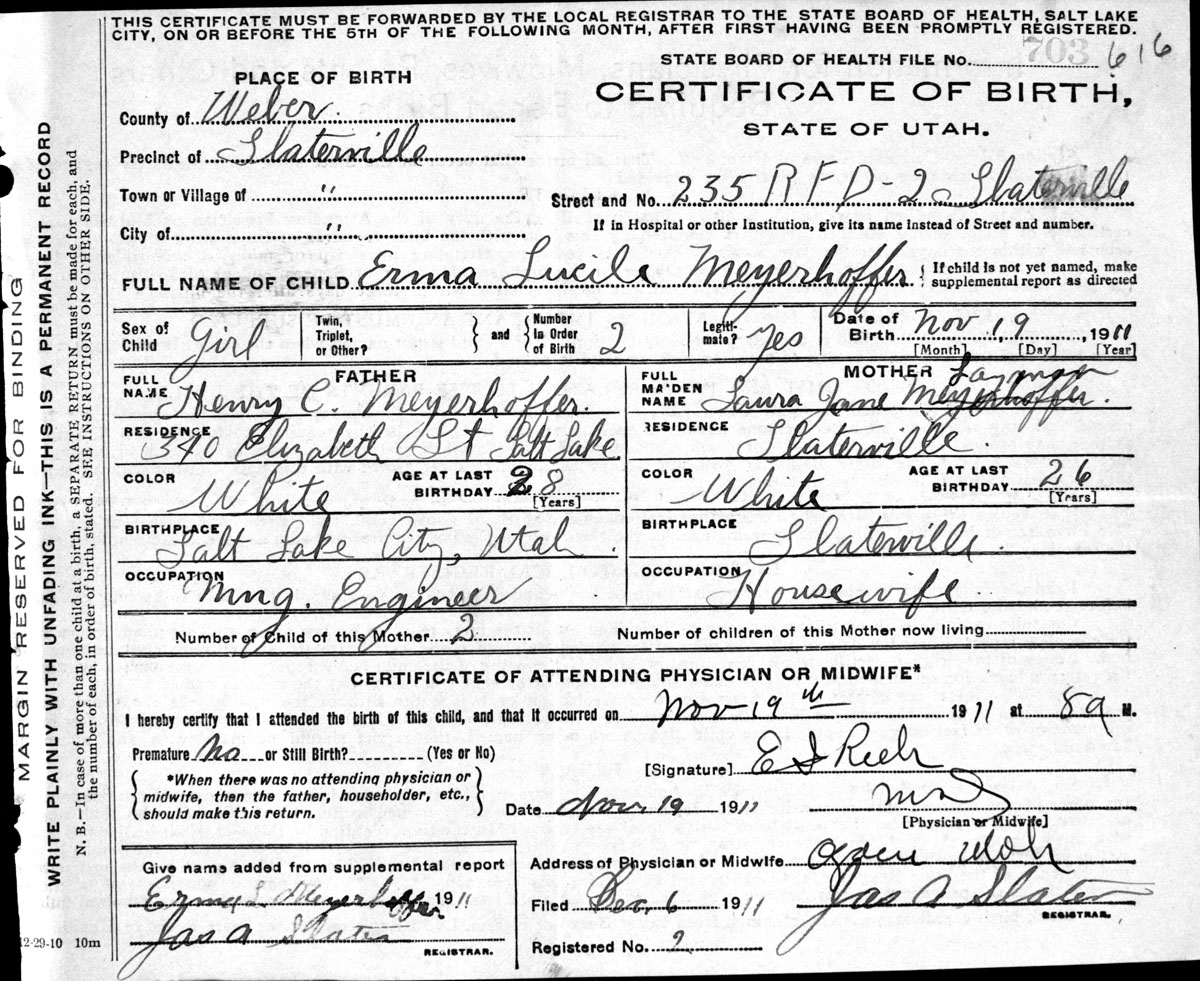 THIS CERTIFICATE MUST BE FORWARDED BY THE LOCAL REGISTRAR TO THE STATE BOARD OF HEALTH, SALT LAKE
CITY, ON OR BEFORE THE 5TH OF THE FOLLOWING MONTH, AFTER FIRST HAVING BEEN PROMPTLY REGISTERED.
MARGIN RESERVED FOR BINDING
WRITE PLAINLY WITH UNFADING INK—THIS IS A PERMANENT RECORD
N. B.—In case of more than one child at a birth, a SEPARATE RETURN must be made for each, and
the number of each, in order of birth, stated. SEE INSTRUCTIONS ON OTHER SIDE.
12-29-10 10m
STATE BOARD OF HEALTH FILE No. 703 616
PLACE OF BIRTH
CERTIFICATE OF BIRTH,
STATE OF UTAH.
County of Weber
Precinct of Slaterville
Town or Village of "
Street and No. 235 RFD-2 Slaterville
City of "
If in Hospital or other Institution, give its name instead of Street and number.
FULL NAME OF CHILD Erma Lucile Meyerhoffer { If child is not yet named, make
supplemental report as directed
Sex of Child Girl Twin, Triplet, or Other? } and { Number in Order of Birth 2 Legiti- mate? Yes Date of Birth Nov 19, 1911
[Month] [Day] [Year]
FATHER
FULL NAME Henry C. Meyerhoffer.
RESIDENCE 340 Elizabeth St Salt Lake
COLOR White AGE AT LAST BIRTHDAY 28 [Years]
BIRTHPLACE Salt Lake City, Utah.
OCCUPATION Mng. Engineer
MOTHER
FULL MAIDEN NAME Laura Jane Layman Meyerhoffer.
RESIDENCE Slaterville.
COLOR White AGE AT LAST BIRTHDAY 26 [Years]
BIRTHPLACE Slaterville.
OCCUPATION Housewife
Number of Child of this Mother 2 Number of children of this Mother now living
CERTIFICATE OF ATTENDING PHYSICIAN OR MIDWIFE*
I hereby certify that I attended the birth of this child, and that it occurred on Nov 19th 1911 at 8 a M.
Premature No or Still Birth? (Yes or No)
{ *When there was no attending physician or
midwife, then the father, householder, etc.,
should make this return. }
[Signature] E I Rich
Date Nov 19 1911 MD
[Physician or Midwife]
Give name added from supplemental report
Erma L. Meyerhoffer 1911
Jas A Slater
REGISTRAR.
Address of Physician or Midwife Ogden Utah
Filed Dec, 6 1911 Jas A Slater
REGISTRAR.
Registered No. 2